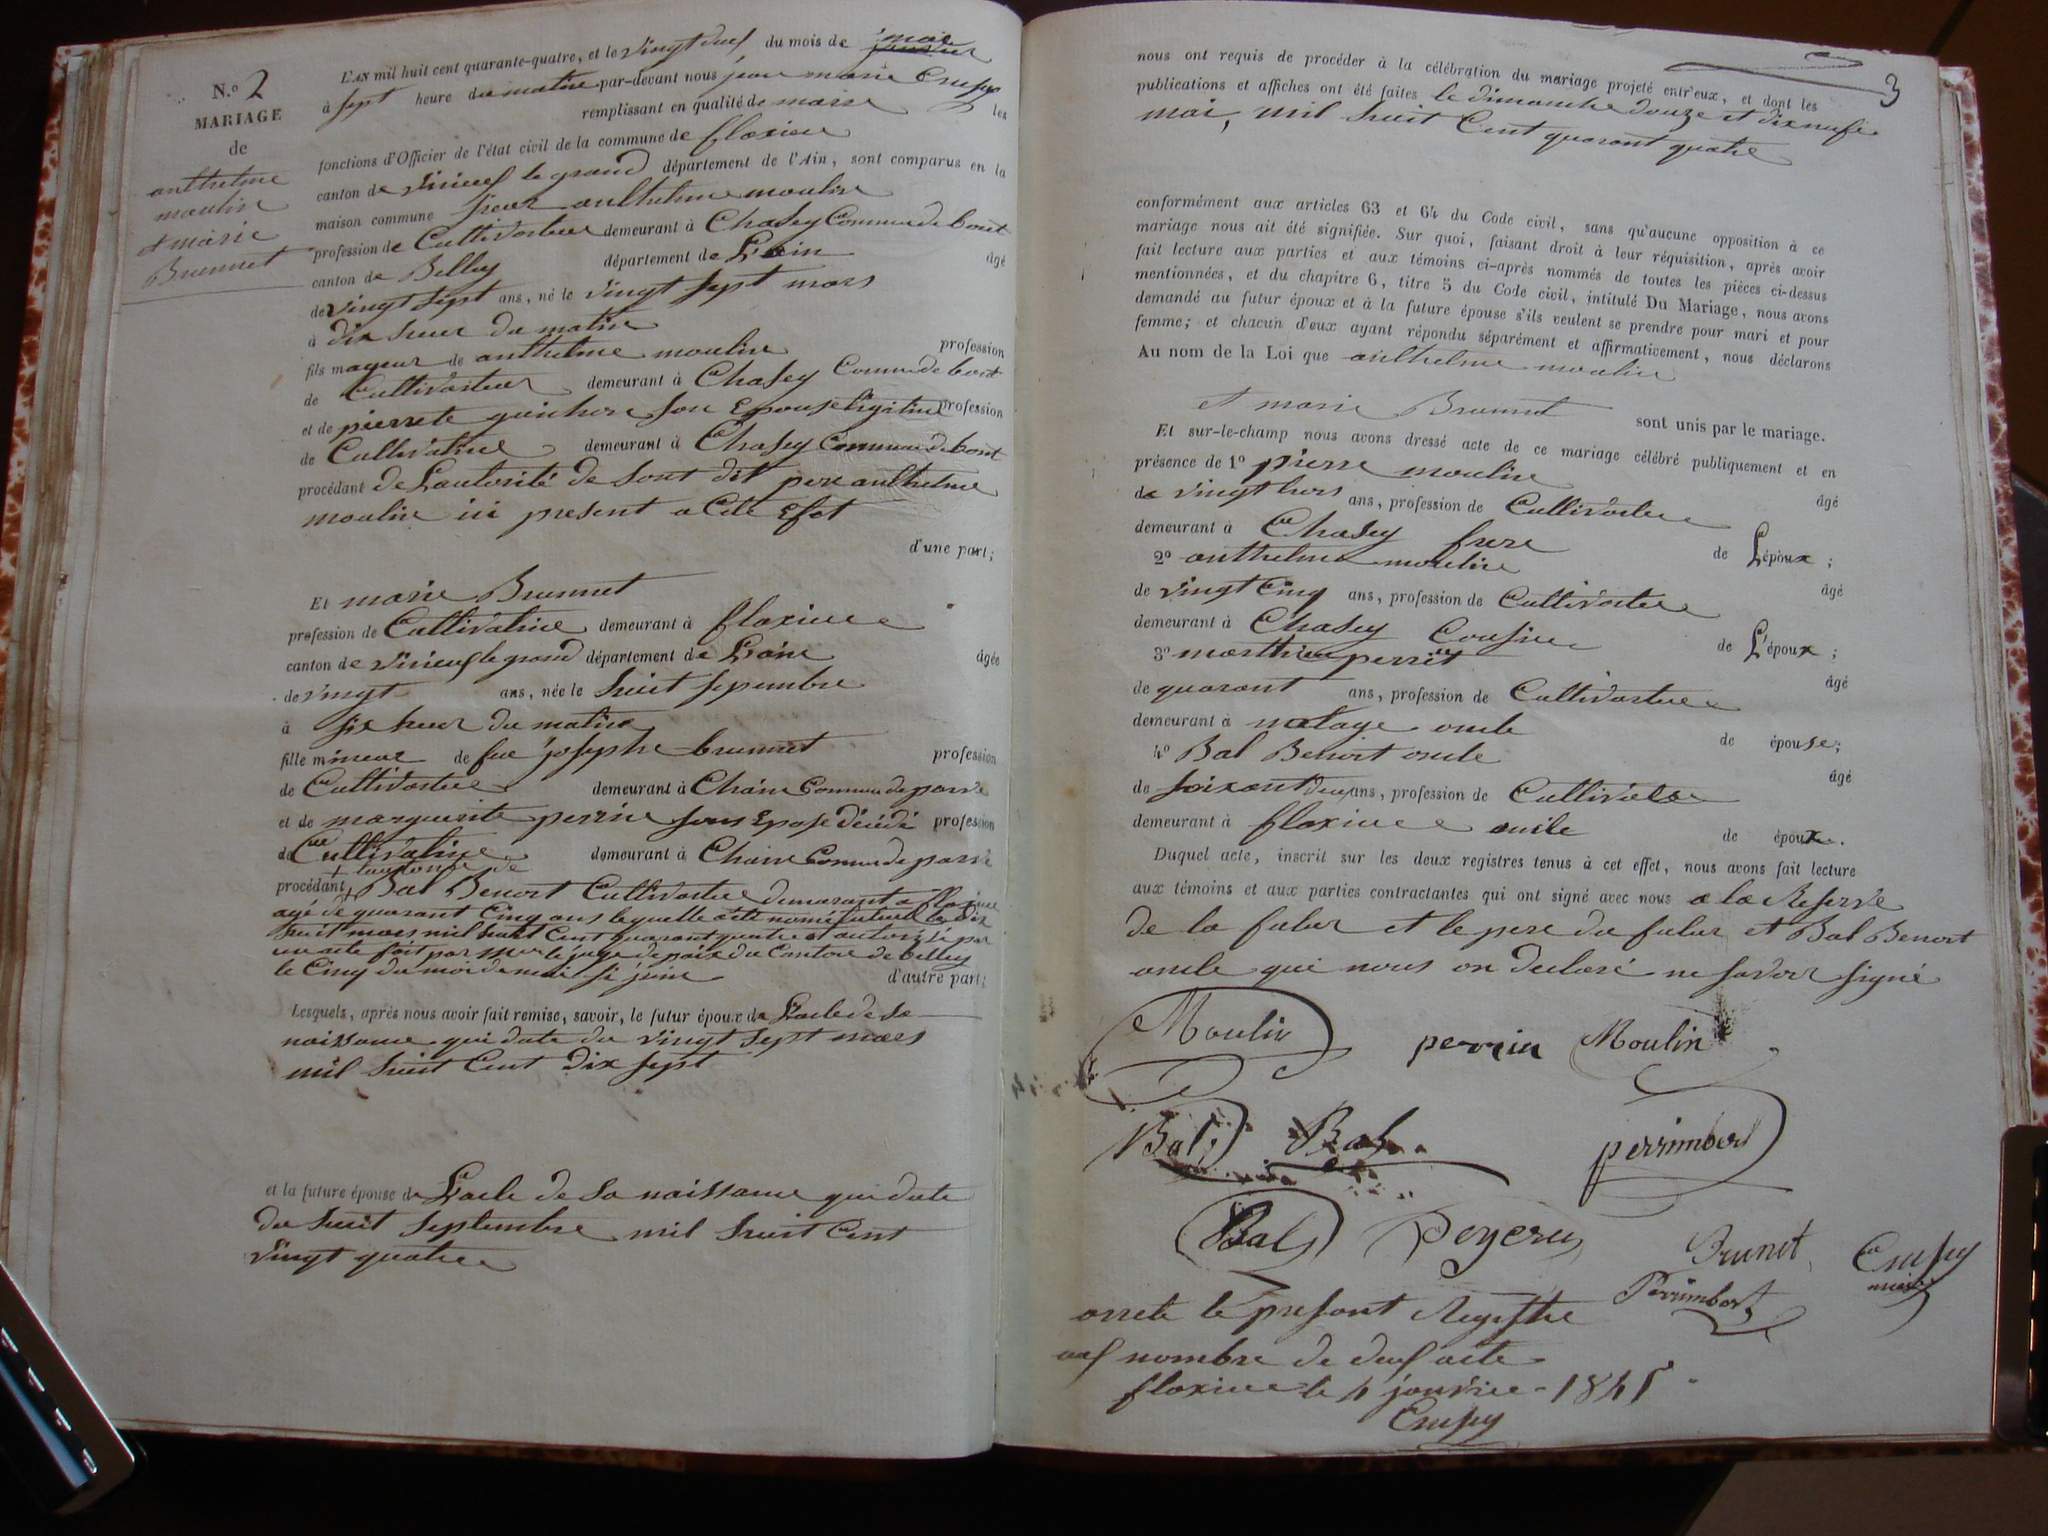 N.º 2
MARIAGE
de
anthelme
moulin
et marie
Brunnet
L'AN mil huit cent quarante-quatre, et le vingt deuf du mois de mai
à sept heure du matin par-devant nous jean marie Crussy
remplissant en qualité de maire les
fonctions d'Officier de l'état civil de la commune de flaxieu
canton de virieuf le grand département de l'Ain, sont comparus en la
maison commune sieur anthelme moulin
profession de Cultivateur demeurant à Chasey Commune de bont
canton de Belley département de L'ain âgé
de vingt sept ans, né le vingt sept mars
à dix heur du matin
fils mageur de anthelme moulin profession
de Cultivateur demeurant à Chasey Commune de bont
et de pierrete guichon son Epouse ligitime profession
de Cultivatrice demeurant à Chasey Commune de bont
procédant de Lautorité de sont dit pere anthelme
moulin ici present a Cete Efet
d'une part;
Et marie Brunnet
profession de Cultivatrice demeurant à flaxieu
canton de virieuf le grand département de L'ain âgée
de vingt ans, née le huit sepembre
à six heur du matin
fille mineur de feu josephe brunnet profession
de Cultivateur demeurant à Chain Commune de
et de marguerite perrin sons Epose décédé profession
de Cultivatrice demeurant à Chain Commune de
+ lautorite de
procédant + Bal Benoit Cultivateur demeurant a flaxieu
agé de quarant Cinq ans lequelle a été nomé tuteur le dix
huit mars mil huit Cent quarant quatre et autorisé par
un acte fait par Mr le juge de paix du Canton de belley
le Cinq du moi de mai si joint d'autre part;
Lesquels, après nous avoir fait remise, savoir, le futur époux de Lacte de sa
naissance qui date du vingt sept mars
mil huit Cent dix sept
et la future épouse de Lacte de sa naissance qui date
du huit septembre mil huit Cent
vingt quatre
3
nous ont requis de procéder à la célébration du mariage projeté entr'eux, et dont les
publications et affiches ont été faites le dimanche douze et dixneufe
mai, mil huit Cent quarant quatre
conformément aux articles 63 et 64 du Code civil, sans qu'aucune opposition à ce
mariage nous ait été signifiée. Sur quoi, faisant droit à leur réquisition, après avoir
fait lecture aux parties et aux témoins ci-après nommés de toutes les pièces ci-dessus
mentionnées, et du chapitre 6, titre 5 du Code civil, intitulé Du Mariage, nous avons
demandé au futur époux et à la future épouse s'ils veulent se prendre pour mari et pour
femme; et chacun d'eux ayant répondu séparément et affirmativement, nous déclarons
Au nom de la Loi que anthelme moulin
et marie Brunnet sont unis par le mariage.
Et sur-le-champ nous avons dressé acte de ce mariage célébré publiquement et en
présence de 1º pierre moulin âgé
de vingt trois ans, profession de Cultivateur
demeurant à Chasey frere de L'époux;
2º anthelme moulin âgé
de vingt Cinq ans, profession de Cultivateur
demeurant à Chasey Cousin de L'époux;
3º perrin âgé
de quarant ans, profession de Cultivateur
demeurant à oncle de épouse;
4º Bal Benoit oncle âgé
de soixant deux ans, profession de Cultivateur
demeurant à flaxieu oncle de époux.
Duquel acte, inscrit sur les deux registres tenus à cet effet, nous avons fait lecture
aux témoins et aux parties contractantes qui ont signé avec nous a la Reserve
de la futur et le pere du futur et Bal Benoit
oncle qui nous on declaré ne savoir signé
Moulin perrin Moulin
Bal Bal perrimbert
Bal Peyeru Brunet Crussy
maire
Perrimbert
arrete le present Registre
auf nombre de deuf acte
flaxieu le 4 janvier 1845
Crussy